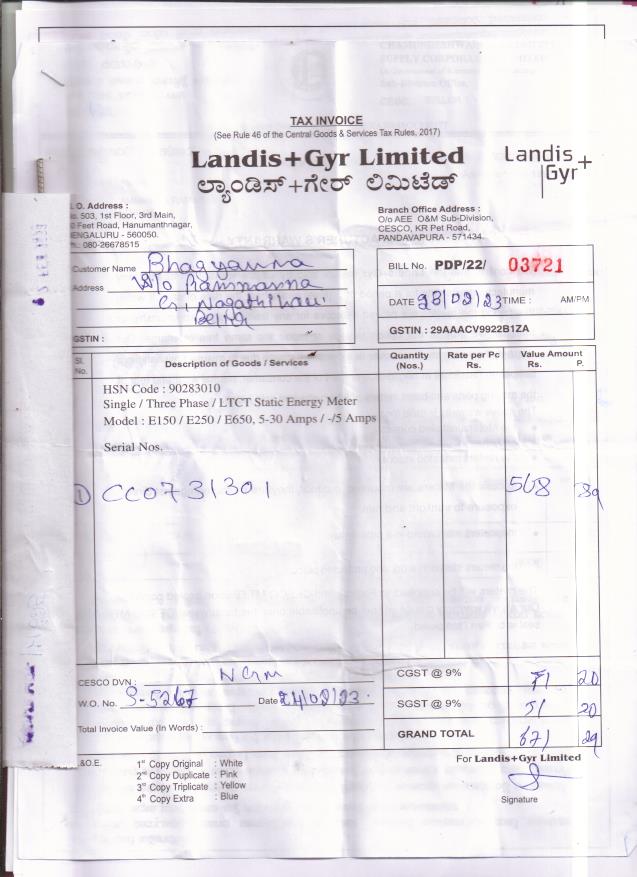 TAX INVOICE
(See Rule 46 of the Central Goods & Services Tax Rules, 2017)
Landis+Gyr Limited
ಲ್ಯಾಂಡಿಸ್+ಗೇರ್ ಲಿಮಿಟೆಡ್
Landis+
Gyr
.O. Address :
503, 1st Floor, 3rd Main,
Feet Road, Hanumanthnagar,
ENGALURU - 560050.
: 080-26678515
Branch Office Address :
O/o AEE O&M Sub-Division,
CESCO, KR Pet Road,
PANDAVAPURA - 571434.
Customer Name
Address W/o
GSTIN :
BILL No. PDP/22/ 03721
DATE 23/02/23 TIME : AM/PM
GSTIN : 29AAACV9922B1ZA
Sl. No. Description of Goods / Services Quantity (Nos.) Rate per Pc Rs. Value Amount Rs. P.
HSN Code : 90283010
Single / Three Phase / LTCT Static Energy Meter
Model : E150 / E250 / E650, 5-30 Amps / -/5 Amps
Serial Nos.
1 CC0731301 568 89
CESCO DVN :
W.O. No. S-5267 Date 24/02/23
Total Invoice Value (In Words) :
CGST @ 9% 51 20
SGST @ 9% 51 20
GRAND TOTAL 671 29
.&O.E.
1st Copy Original : White
2nd Copy Duplicate : Pink
3rd Copy Triplicate : Yellow
4th Copy Extra : Blue
For Landis+Gyr Limited
Signature